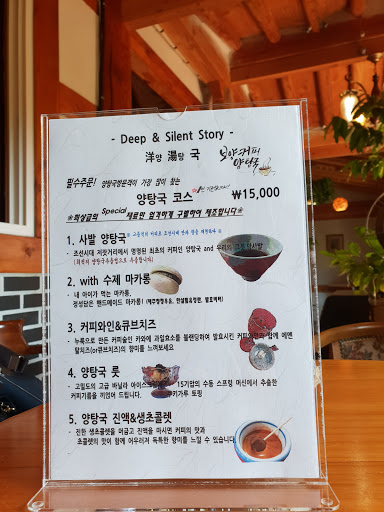 - Deep & Silent Story -
洋양 湯탕 국
보양커피
양탕국
필수주문! 양탕국방문객이 가장 많이 찾는
양탕국 코스 ₩15,000
※최상급의 Special 재료만 엄격하게 구별하여 제조합니다※
1. 사발 양탕국
- 조선시대 저잣거리에서 명명된 최초의 커피인 양탕국 and 우리의
2. with 수제 마카롱
- 내 아이가 먹는 마카롱!
정성담은 핸드메이드 마카롱!
3. 커피와인&큐브치즈
- 누룩으로 만든 커피술인 카와에 과일효소를 블랜딩하여 발효시킨 커피와인과 함께 에멘
탈치즈(or큐브치즈)의 향미를 느껴보세요
4. 양탕국 롯
- 고밀도의 고급 바닐라 아이스크림에 15기압의 수동 스프링 머신에서 추출한
커피기름을 끼얹어 드립니다. 카카오가루 토핑
5. 양탕국 진액&생초콜렛
- 진한 생초콜렛을 머금고 진액을 마시면 커피의 맛과
초콜렛의 맛이 함께 어우러져 독특한 향미를 느낄 수 있습니다